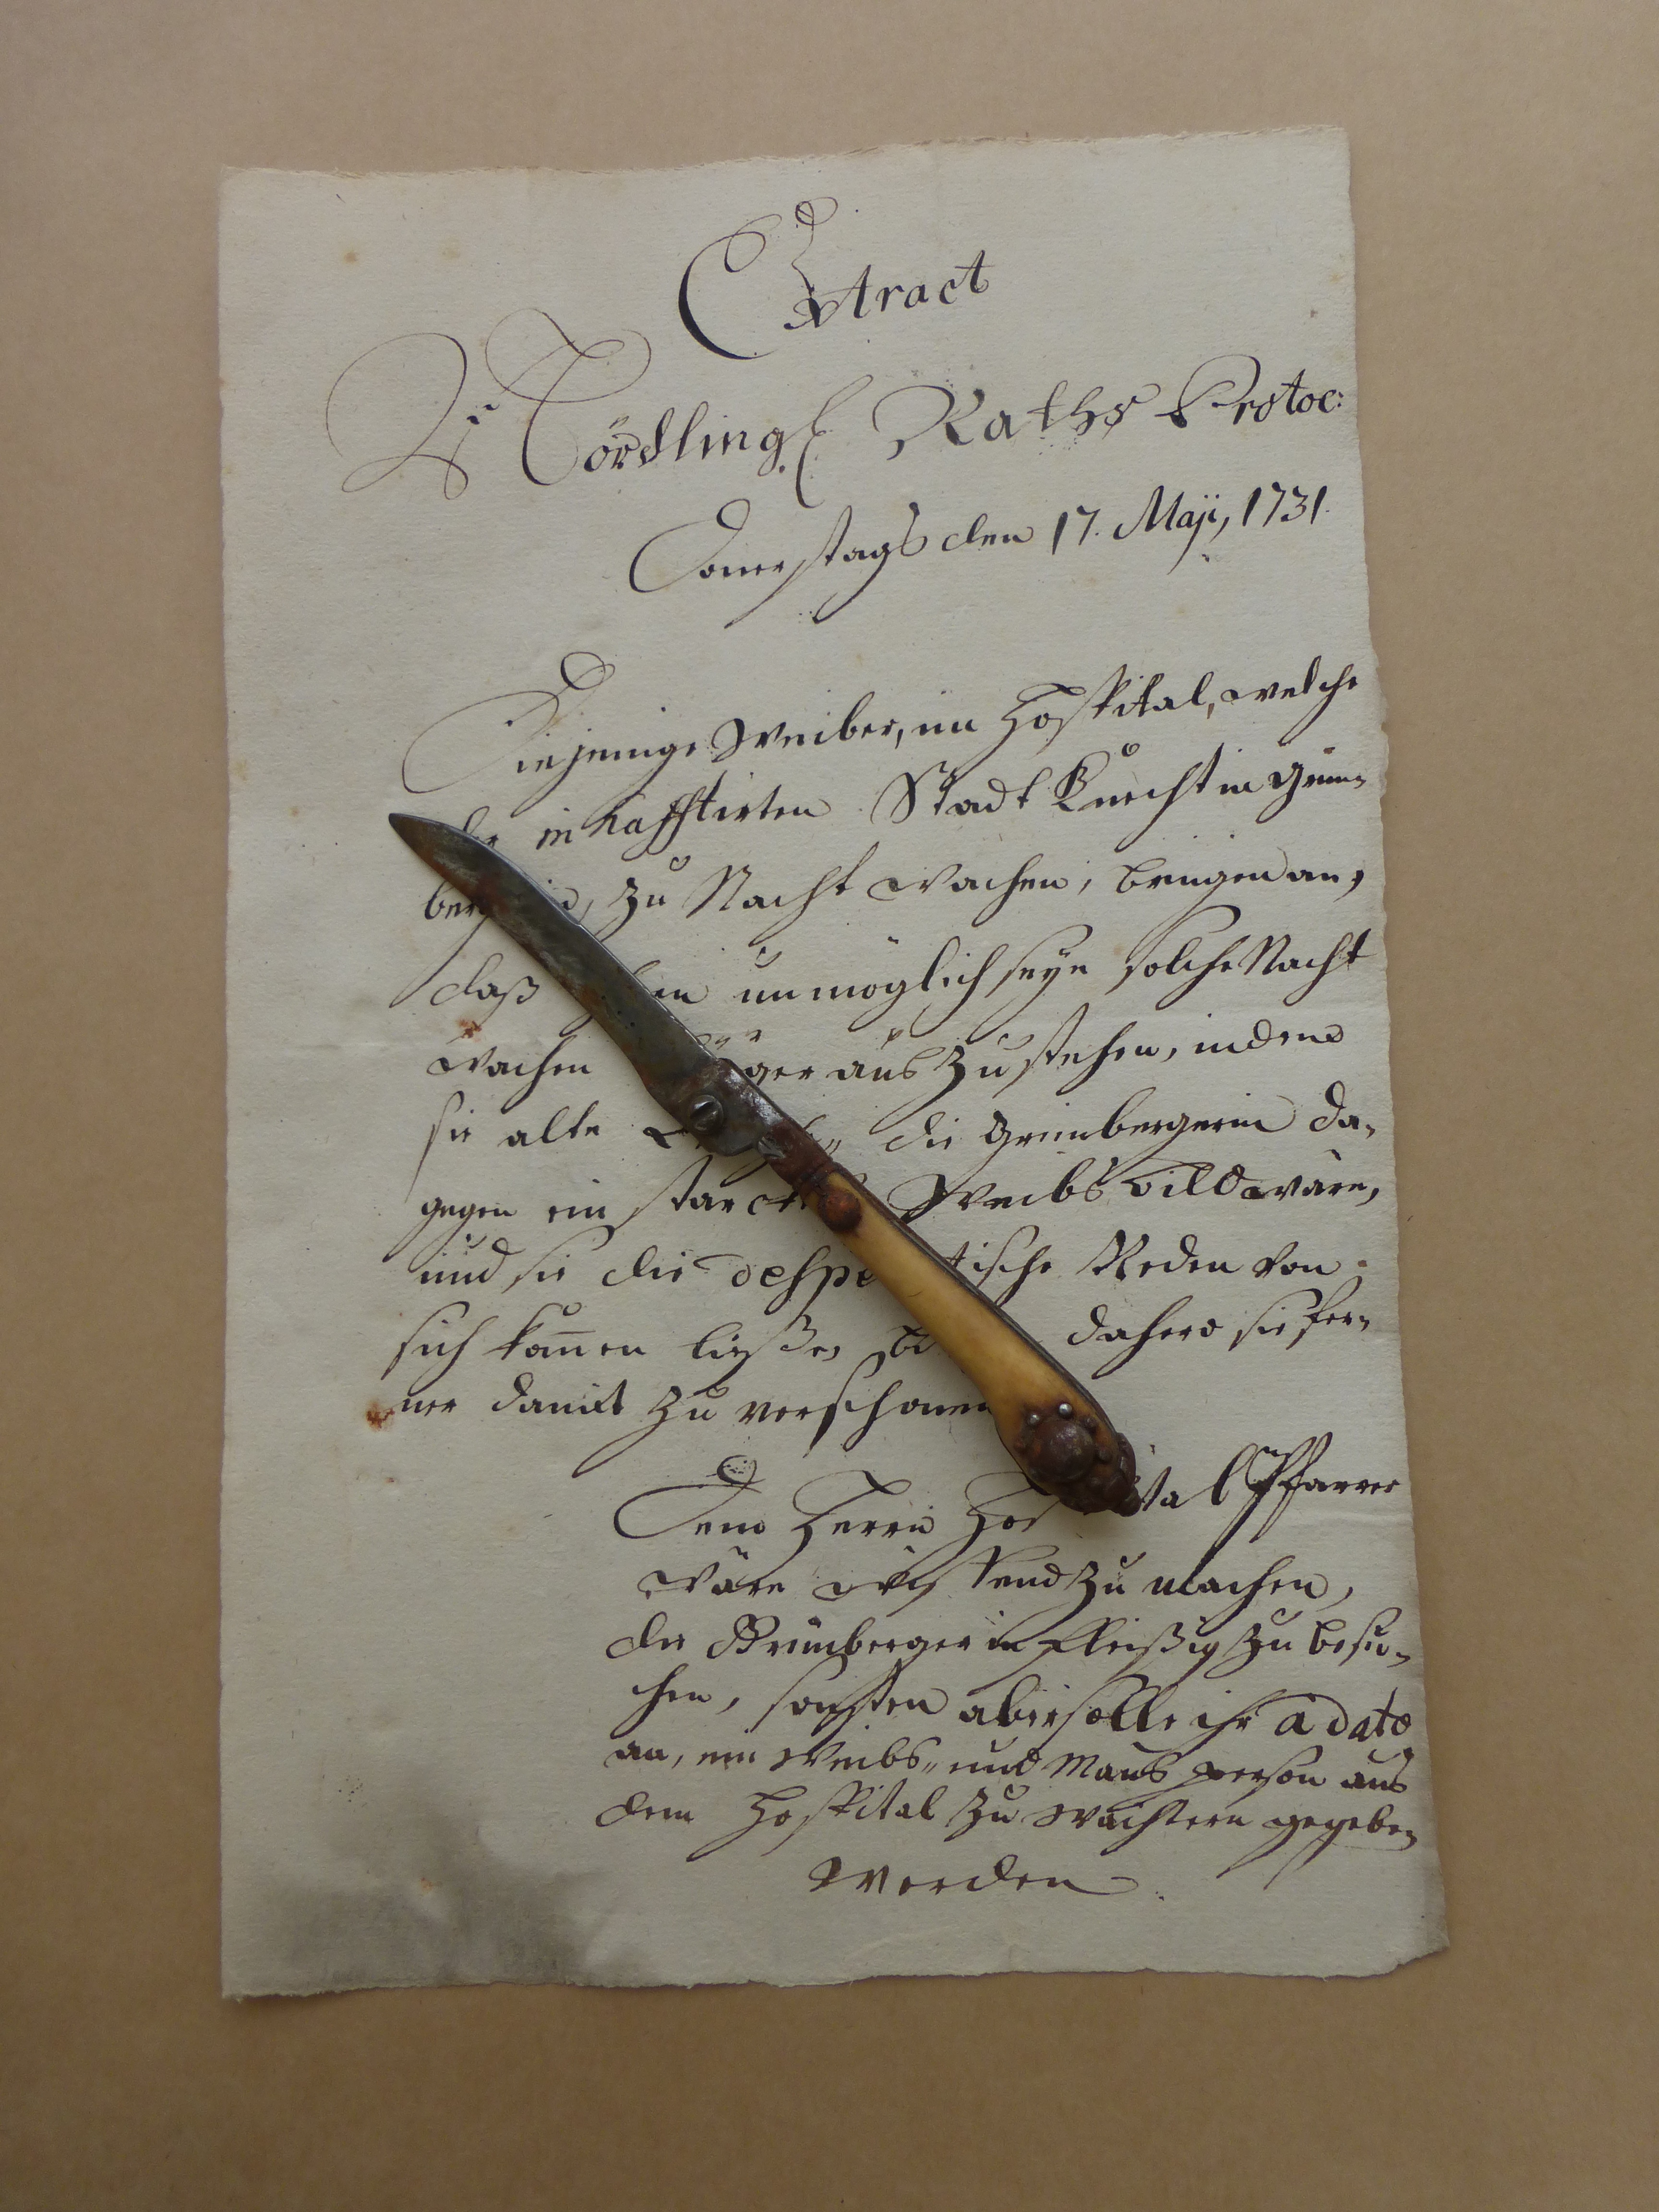 Extract
Nördling. Raths Protoc:
Donerstags den 17. Maji, 1731.
Diejenige Weiber, im Hospital, welche
die inhafftirten Stadt Knechtin Grün-
berg zu Nacht wachen, bringen an,
daß unmöglich seye solche Nacht
wachen länger auszustehen, indeme
sie alte die Grünbergerin da-
gegen ein starckes Weibsbild wäre,
und sie die desperatische Reden von
sich kom̅en ließe, dahero sie fer-
ner damit zu verschonen
Dem Herrn Hospital Pfarrer
wäre wissend zu machen,
die Grünbergerin fleißig zu besu-
chen, sonsten aber solle ihr a dato
an, ein Weibs- und Mans person aus
dem Hospital zu Wächtern gegeben
werden.